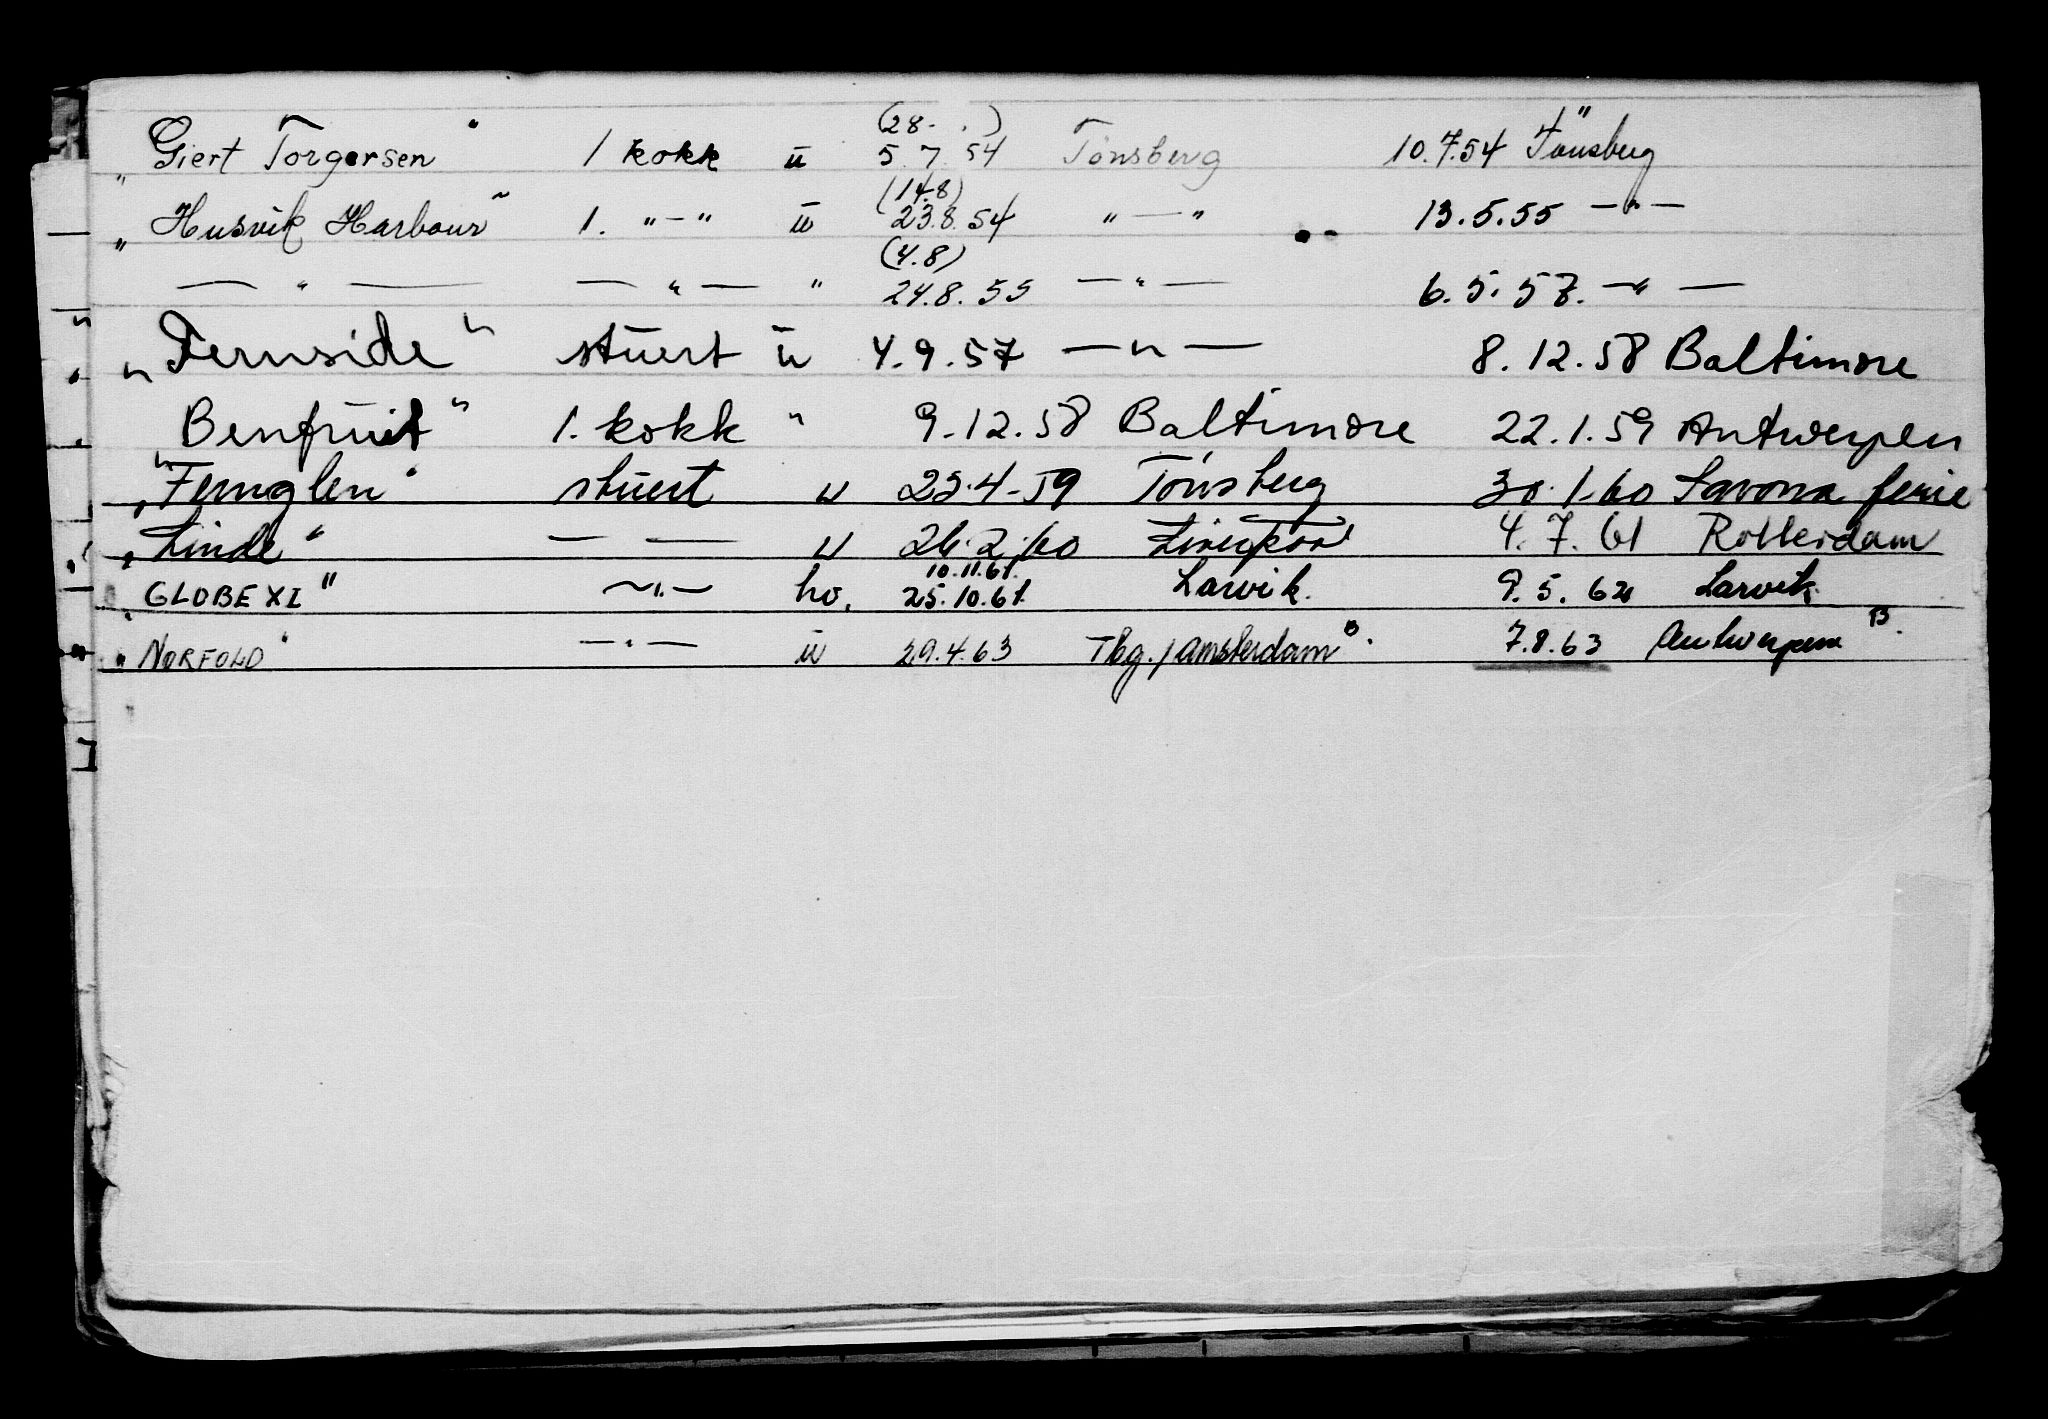 (28- . )
„Giert Torgersen" 1 kokk u 5.7.54 Tønsberg 10.7.54 Tønsberg
(14.8)
„Husvik Harbour" 1. "—" u 23.8.54 "—" 13.5.55 —"—
(4.8)
—"— —"— " 24.8.55 —"— 6.5.57. —"—
„Fernside" stuert u 4.9.57 —"— 8.12.58 Baltimore
Benfruit" 1. kokk " 9.12.58 Baltimore 22.1.59 Antwerpen
„Fernglen" stuert u 23.4-59 Tønsberg 30.1-60 Savona ferie
„Linde" — — u 26.2.60 Liverpool 4.7.61 Rotterdam
10.11.61.
„GLOBE XI" —"— hv. 25.10.61. Larvik. 9.5.62 Larvik.
„NORFOLD" —"— u 29.4.63 Tbg./Amsterdam B. 7.8.63 Antwerpen B.